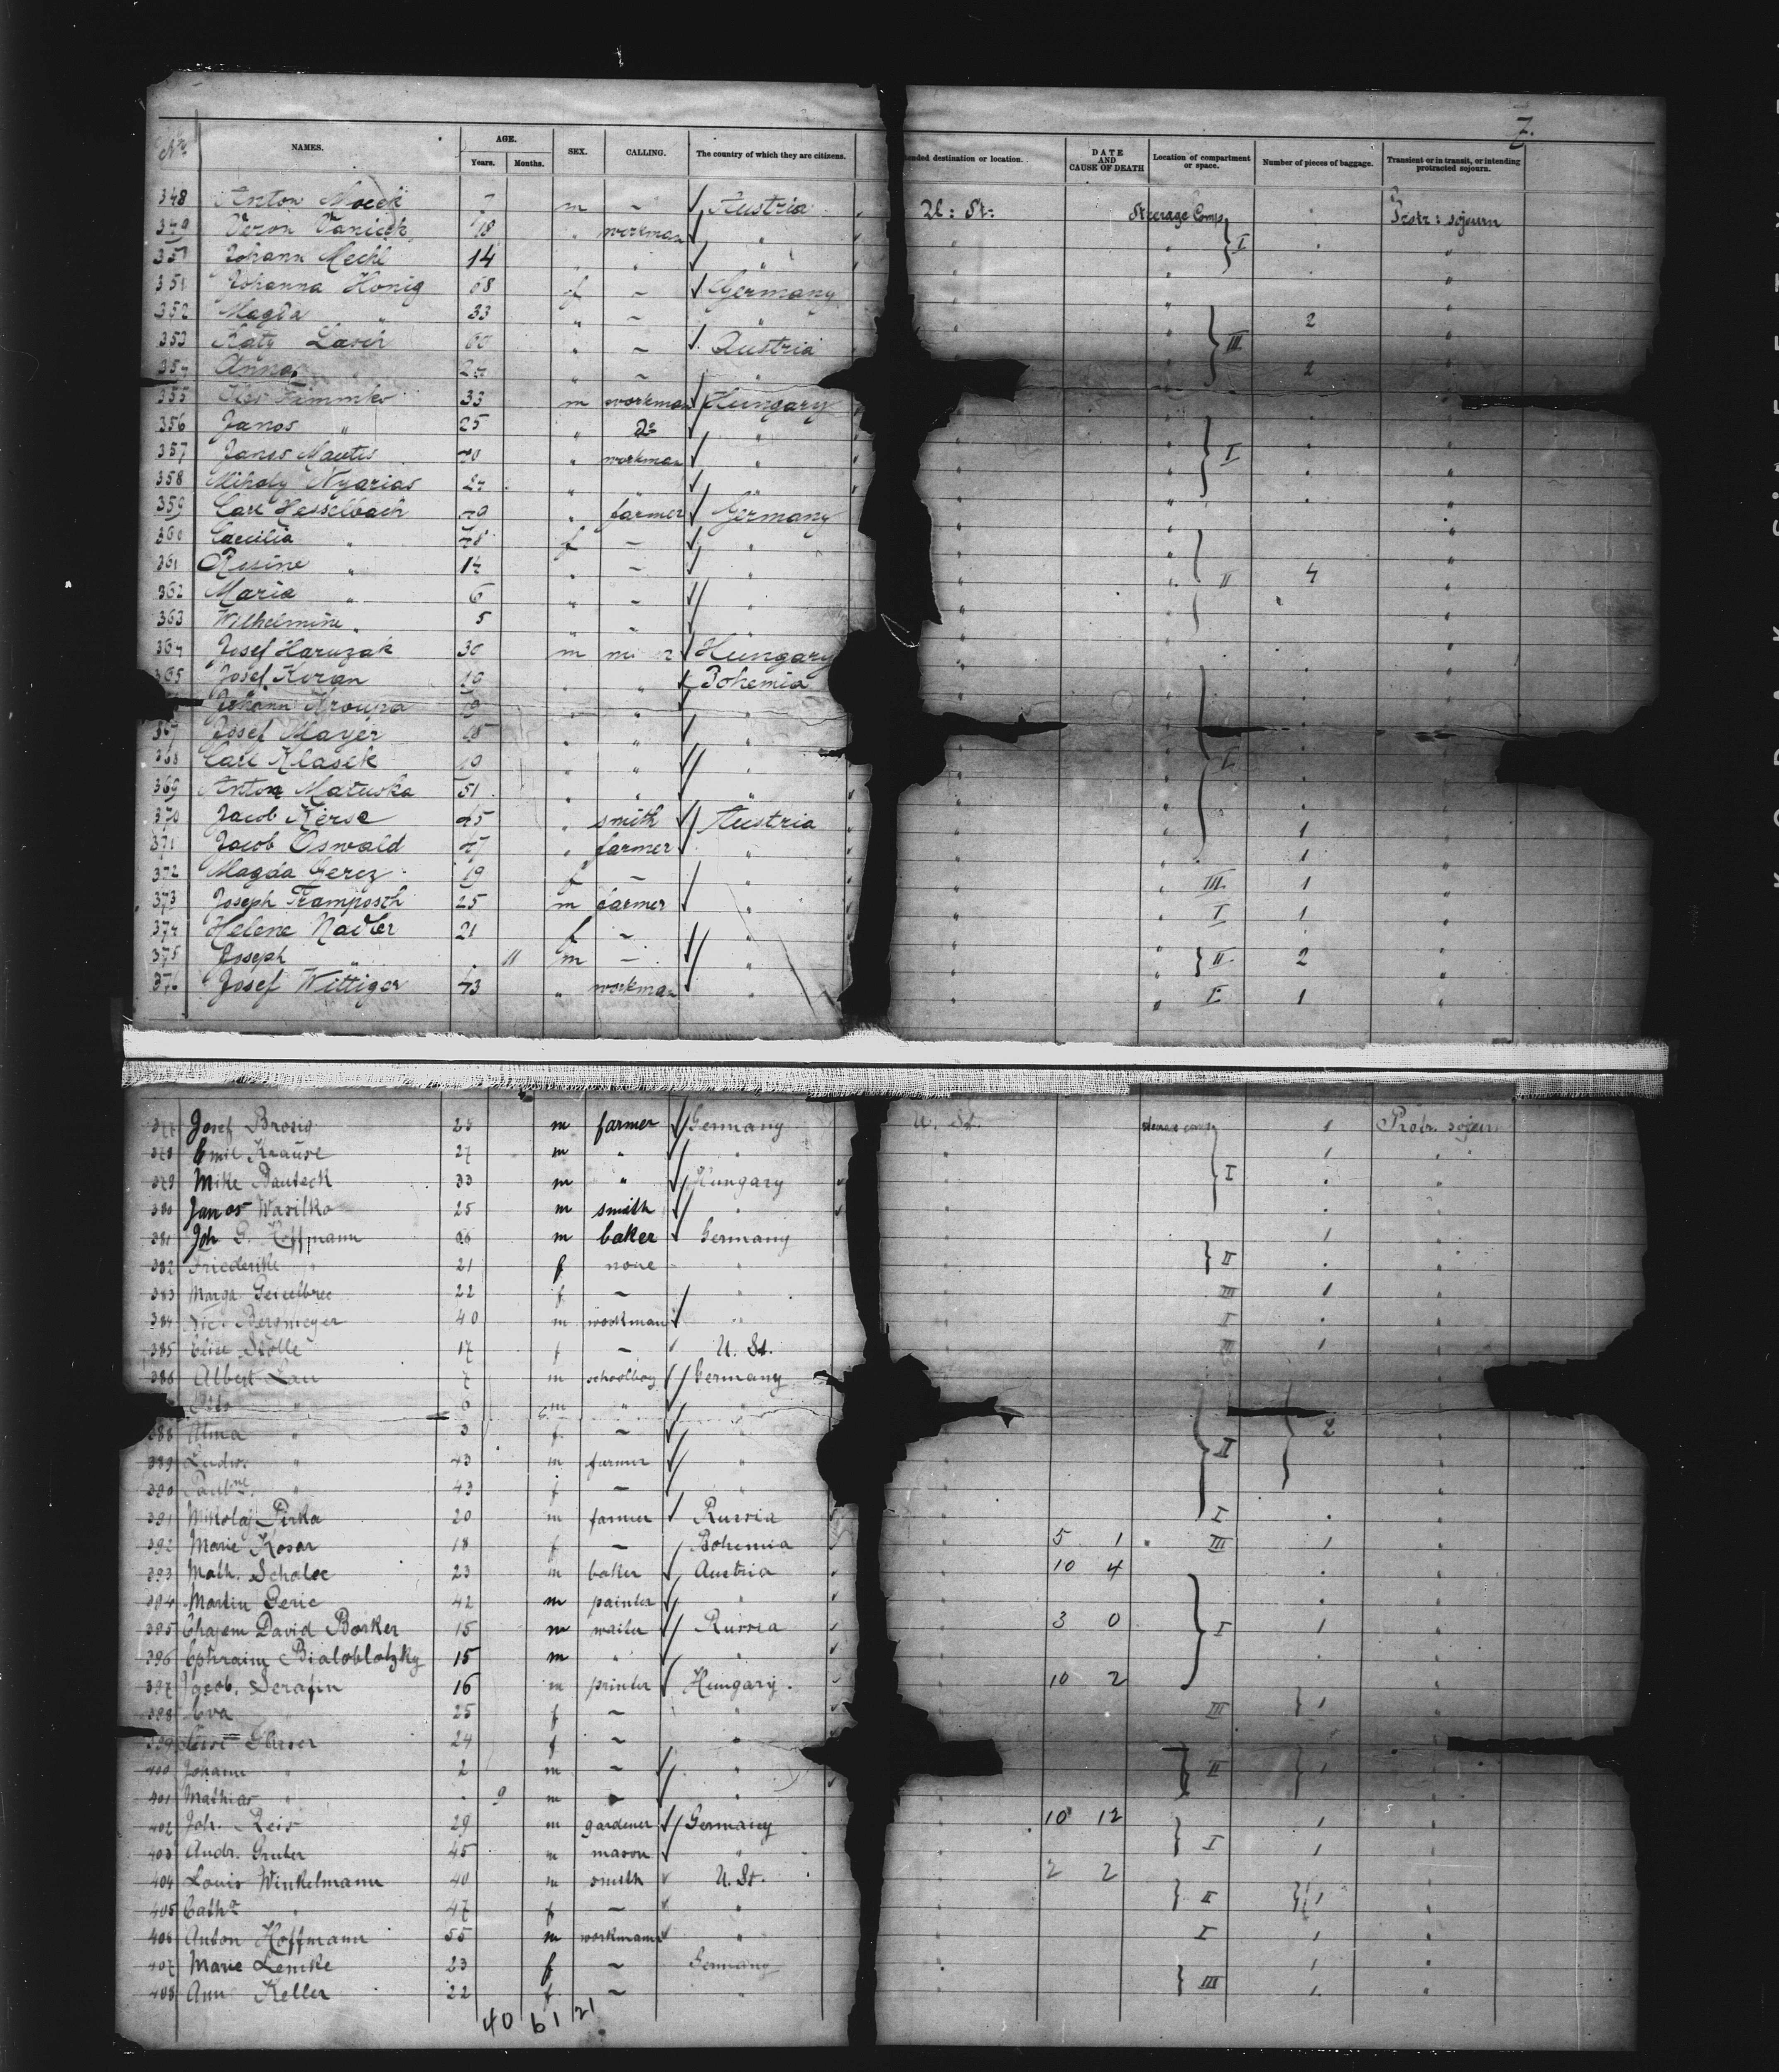 7.
No. NAMES. AGE. Years. Months. SEX. CALLING. The country of which they are citizens. ended destination or location. DATE AND CAUSE OF DEATH Location of compartment or space. Number of pieces of baggage. Transient or in transit, or intending protracted sojourn.
348 Anton 7 m - Austria U: St: Steerage Comp Protr: sojourn
349 18 " workman " I
350 Johann Mechl 14 " " "
351 Johanna Honig 68 f - Germany
352 Magda " 33 " - " 2
353 Katy " - Austria III
354 Anna " 24 " - " 2
355 33 m workman Hungary
356 Janos " 25 " do "
357 Janos " workman " I
358 Mihaly Nyarias 24 " " "
359 Carl Hesselbach " farmer Germany
360 Caecilia " f - "
361 Rosine " 14 " - " II 4
362 Maria " 6 " - "
363 Wilhelmine " 5 " - "
364 Josef Haruzak 30 m Hungary
365 Josef Koran 19 " " Bohemia
Johann Kroupa " " "
367 Josef Mayer " " "
368 Carl Klasek " " " I
369 Anton Matuska 51 " " "
370 Jacob 45 " smith Austria 1
371 Jacob Oswald 47 " farmer " 1
372 Magda Gerez 19 f - " III 1
373 Joseph Tramposch 25 m farmer " I 1
374 Helene Nadler 21 f - "
375 Joseph " 11 m - " II 2
376 Josef Wittiger 43 " workman " I 1
377 Josef Brosig m farmer Germany U. St. 1 Protr. sojourn
378 Emil Krause 27 m " " 1
379 Mike 33 m " Hungary I
380 Janos Wasilko 25 m smith "
381 Joh G. Hoffmann 26 m baker Germany 1
382 Friederike " 21 f none " II
383 Marga 22 f - " III 1
384 Nic. Bergmeyer 40 m workman " I
385 Elise Stolle 17 f - U. St. III 1
386 Albert Lau 7 m schoolboy Germany
Otto " 6 m " "
388 Alma " 3 f - " 2
389 Ludw. " 43 m farmer " II
390 " 43 f - "
391 Mikolaj Pirka 20 m farmer Russia I
392 Marie Kosar 18 f - Bohemia 5 1 III 1
393 Math. 23 m baker Austria 10 4
394 Martin Geric 42 m painter "
395 Chajem David Borker 15 m waiter Russia 3 0 I 1
396 Ephraim Bialoblotzky 15 m " "
397 Jacob. Serafin 16 m printer Hungary. 10 2
398 Eva " 25 f - " III 1
399 24 f - "
400 Johann " 2 m - " II 1
401 Mathias " 9 m - "
402 Joh. Reis 29 m gardener Germany 10 12 1
403 Andr. Gruber 45 m mason " I 1
404 Louis Winkelmann 40 m smith U. St. 2 2
405 Catha " 47 f - " II 1
406 Anton Hoffmann 55 m workman " I 1
407 Marie Lemke 23 f - Germany 1
408 Ann Keller 22 f - " III 1
40 61 21